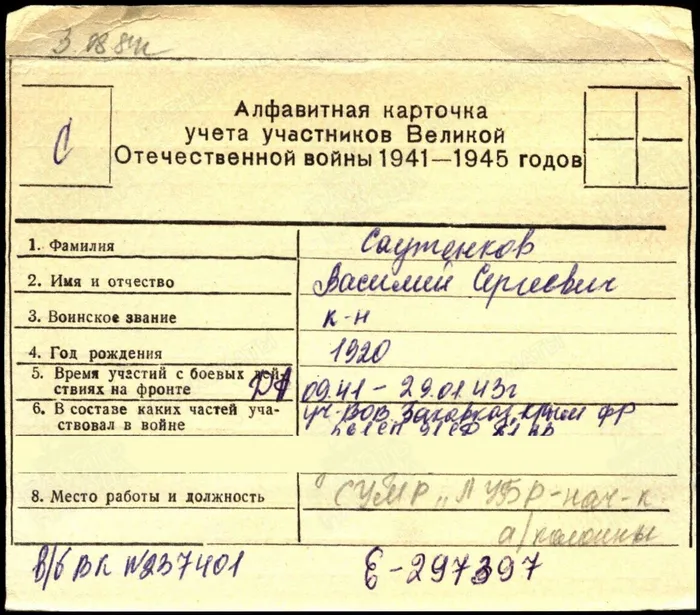 3.08.84г
С
Алфавитная карточка
учета участников Великой
Отечественной войны 1941—1945 годов
1. Фамилия
Саутенков
2. Имя и отчество
Василий Сергеевич
3. Воинское звание
к-н
4. Год рождения
1920
5. Время участий с боевых дей-
ствиях на фронте
ДА 09.41 - 29.01.43г
6. В составе каких частей уча-
ствовал в войне
уч-ВОВ Закавказ, Крым фр
8. Место работы и должность
СУМР „ЛУБР-нач-к
а/колонны
в/б ВК №237401
Е-297397